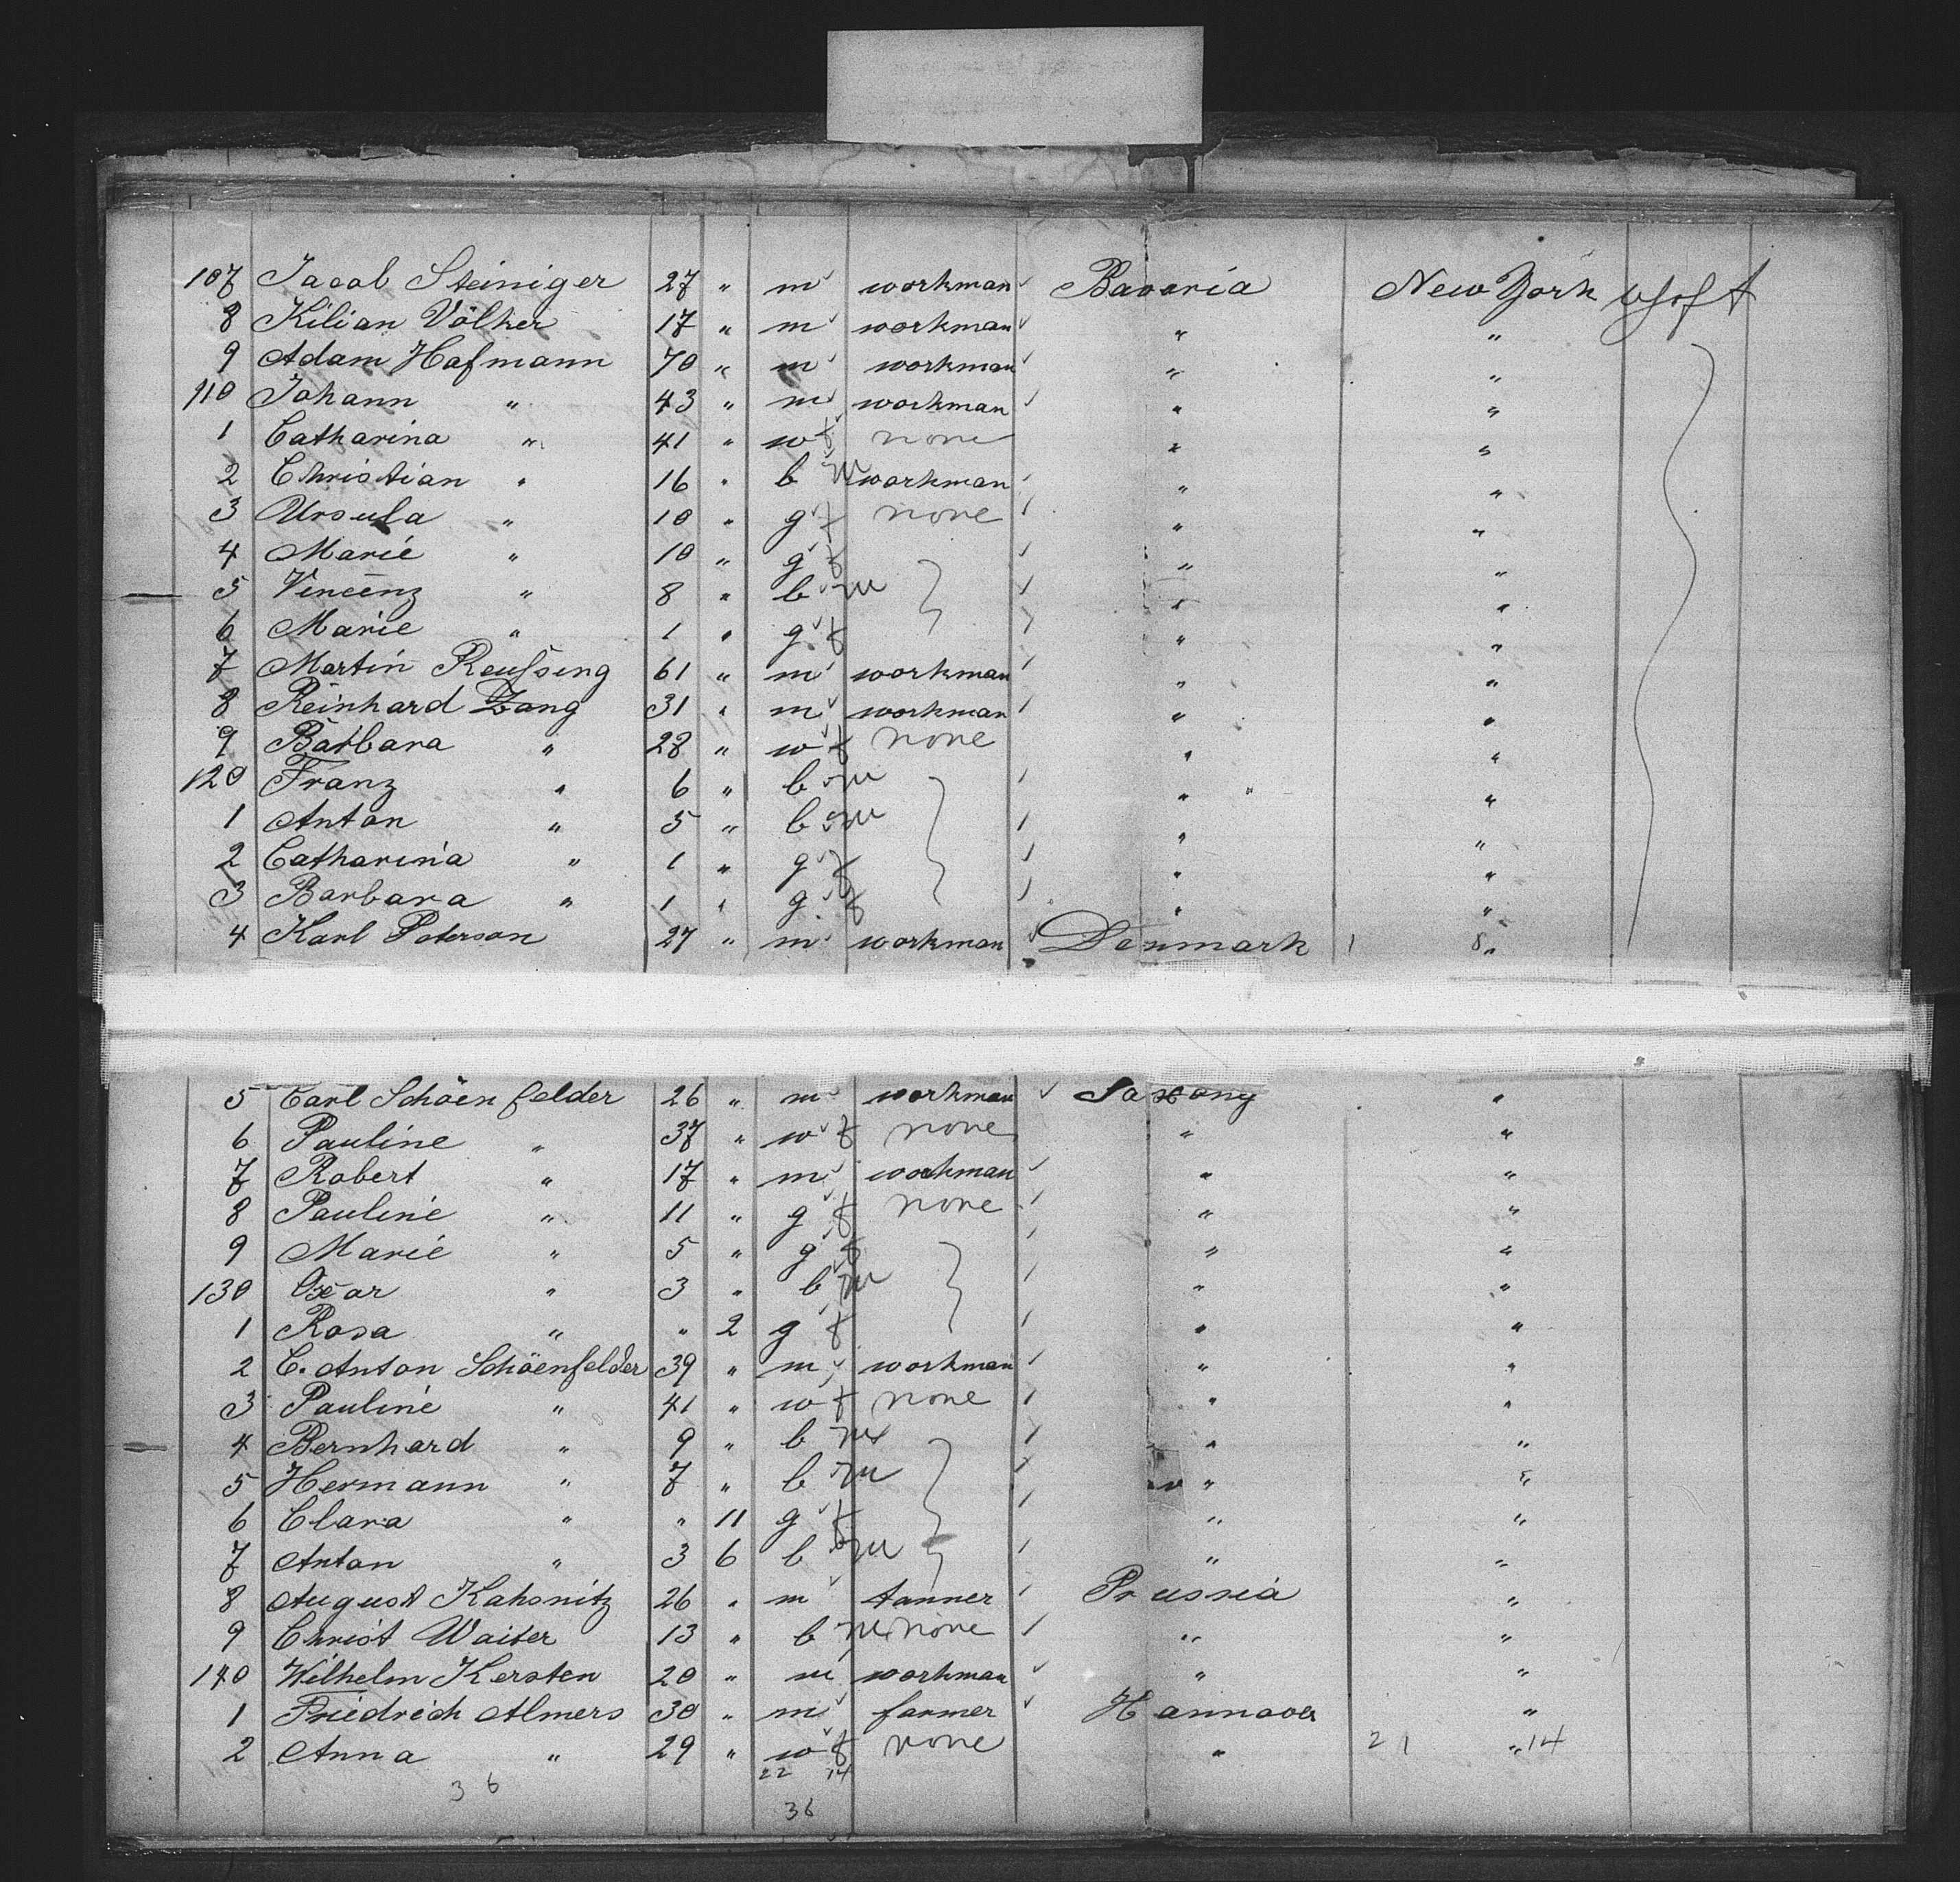 107 Jacob Steiniger 27 " m workman Bavaria New York
8 Kilian Völker 17 " m workman " "
9 Adam Hofmann 70 " m workman " "
110 Johann " 43 " m workman " "
1 Catharina " 41 " w f none " "
2 Christian " 16 " b m workman " "
3 Ursula " 10 " g f none " "
4 Marie " 10 " g f " "
5 Vincenz " 8 " b m " "
6 Marie " 1 " g f " "
7 Martin Reuſsing 61 " m workman " "
8 Reinhard Zang 31 " m workman " "
9 Barbara " 28 " w f none " "
120 Franz " 6 " b m " "
1 Anton " 5 " b m " "
2 Catharina " 1 " g f " "
3 Barbara " 1 " g f " "
4 Karl Peterson 27 " m workman Denmark 1 8 "
5 Carl Schöenfelder 26 " m workman Saxony "
6 Pauline " 37 " w f none " "
7 Robert " 17 " m workman " "
8 Pauline " 11 " g f none " "
9 Marie " 5 " g f " "
130 Oscar " 3 " b m " "
1 Rosa " " 2 g f " "
2 C. Anton Schöenfelder 39 " m workman " "
3 Pauline " 41 " w f none " "
4 Bernhard " 9 " b m " "
5 Hermann " 7 " b m " "
6 Clara " " 11 g f " "
7 Anton " 3 6 b m " "
8 August Kahsnitz 26 " m tanner Prussia "
9 Christ Waiter 13 " b m none " "
140 Wilhelm Kersten 20 " m workman " "
1 Friedrich Almers 30 " m farmer Hannover "
2 Anna " 29 " w f none " 21 " 14
22 14
36 36